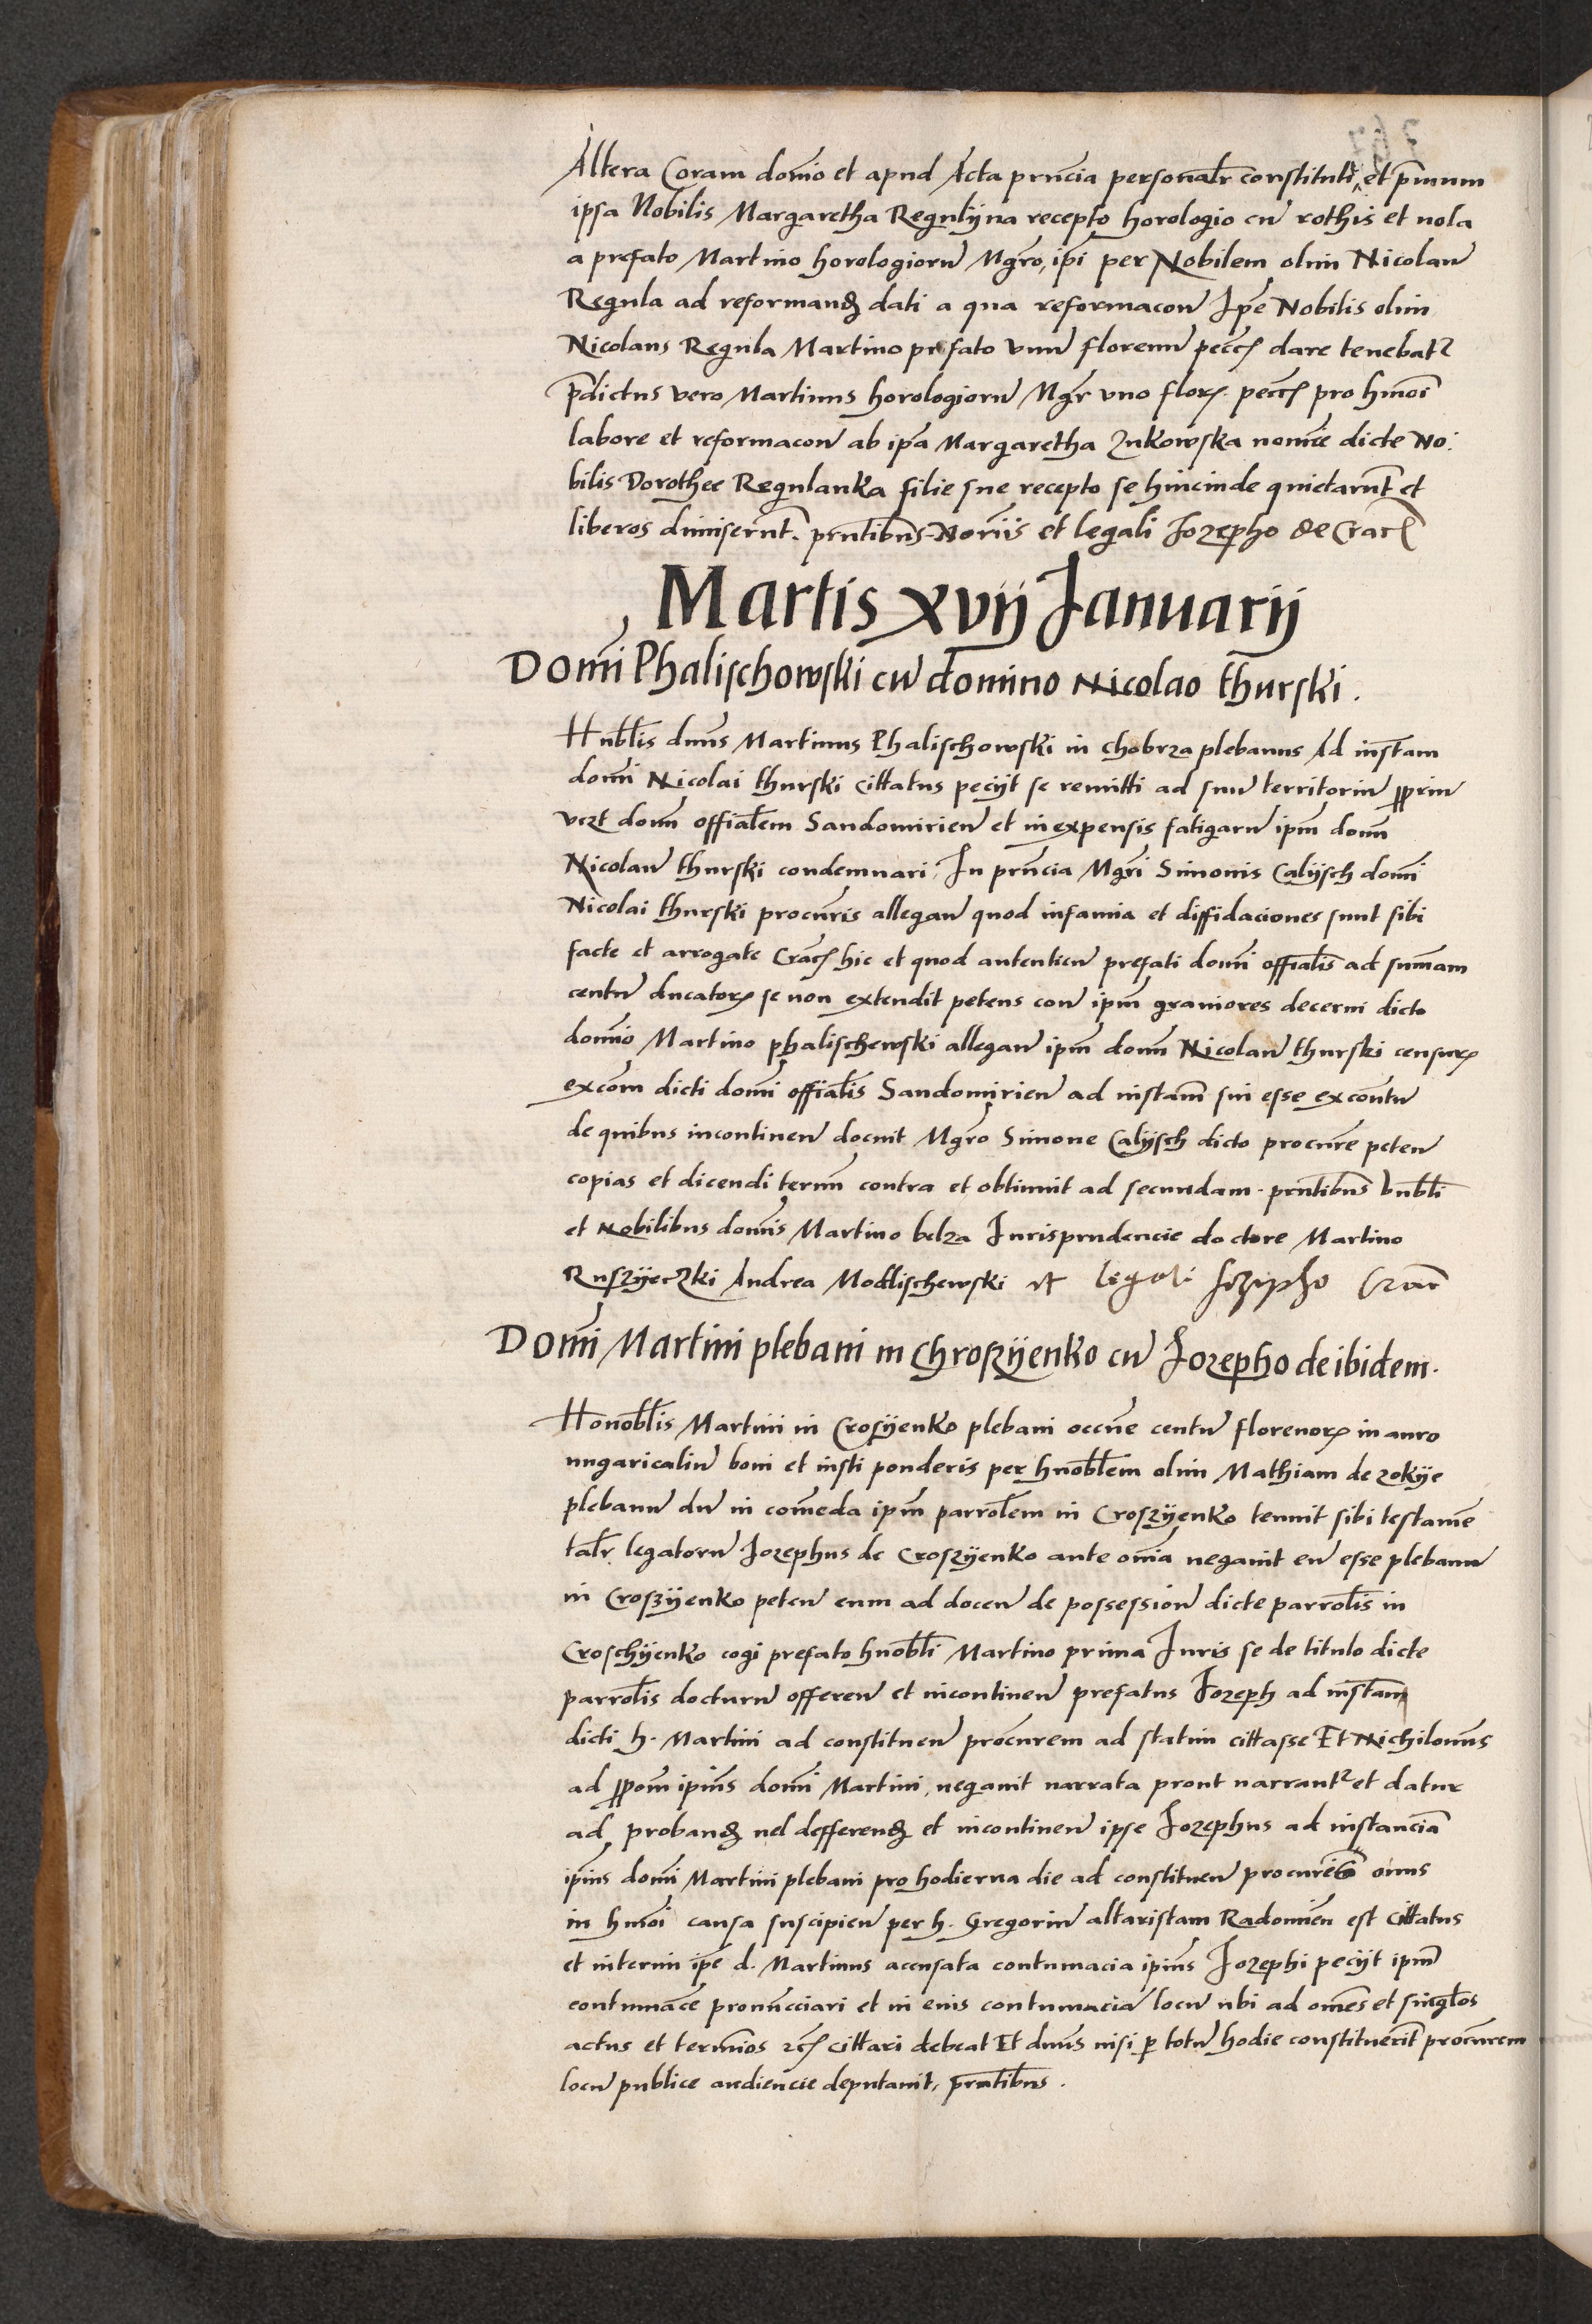 Altera Coram domīo et apud Acta pn̄cia personalr̄ constituti, et p̄mum
ipsa Nobilis Margaretha Regulyna recepto horologio cū rothis et nola
a prefato Martino horologiorū Mgr̄o, ip̄i per Nobilem olim Nicolaū
Regula ad reformanꝫ dati a qua reformacoē Ip̄e Nobilis olim
Nicolaus Regula Martino prefato vnū florenū pecc̄ dare tenebatr
p̄dictus vero Martinus horologiorū Mgr̄ vno flor pecc̄ pro hmōi
labore et reformacoē ab ip̄a Margaretha Zukowska nomīe dicte No.
bilis Dorothee Regulanka filie sue recepto se hincinde quietarūt et
liberos dimiserūt. pn̄tibus Nor̄iis et legali Jozepho de Crac
Martis xvij Januarij
Domī Phalischowski cū domino Nicolao thurski.
Hnbl̄is dnūs Martinus Phalischowski in Chobrza plebanus Ad instam̄
domī Nicolai thurski cittatus peciit se remitti ad suū territoriū ppriū
vczt domū offialem Sandomirień et in expensis fatigarū ipm̄ domū
Nicolaū thurski condemnari, In pn̄cia Mgr̄i Simonis Calijsch domī
Nicolai thurski procūris allegaū quod infamia et diffidaciones sunt sibi
facte et arrogate Crac̄ hic et quod autenticū prefati domī offialis ad sum̄am
centū ducator se non extendit petens con̄ ipm̄ grauiores decerni dicto
domīo Martino phalischewski allegaū ipm̄ domū Nicolaū thurski censur
excom̄ dicti domī offialis Sandomirień ad instam̄ sui esse excom̄tū
de quibus incontineū docuit Mgr̄o Simone Calijsch dicto procūre peteū
copias et dicendi termū contra et obtinuit ad secundam. pn̄tibus vnbl̄i
et Nobilibus domīs Martino belza Jurisprudencie doctore Martino
Ruszyeczki Andrea Modlischewski et legali Jozepho Crac̄
Domī Martini plebani in Chroszyenko cū Jozepho de ibidem.
Honobl̄is Martini in Crosyenko plebani occūe centū florenor in auro
ungaricaliū boni et iusti ponderis per hnobl̄em olim Mathiam de zokije
plebanū dū in com̄eda ipm̄ parrolem̄ in Croszyenko tenuit sibi testame
talr̄ legatorū Jozephus de Croszyenko ante om̄ia negauit eū esse plebanū
in Croszyenko peteū eum ad doceū de possessioū dicte parrolis in
Croschyenko cogi prefato hnobl̄i Martino prima Juris se de titulo dicte
parrolis docturū offereū et incontineū prefatus Jozeph ad instam̄
dicti h. Martini ad constitueū procūrem ad statim cittasse Et Nichilomūs
ad pposom̄ ipius domī Martini, negauit narrata prout narrantr et datur
ad probanꝫ uel defferenꝫ et incontineū ipse Jozephus ad instancia
ipius domī Martini plebani pro hodierna die ad constitueū procūrem onus
in hmōi causa suscipieū per h. Gregoriū altaristam Radomień est cittatus
et interim ip̄e d. Martinus accusata contumacia ipius Jozephi peciit ipm̄
contumace pronuncciari et in eius contumaciā locū ubi ad om̄es et singlos
actus et termīos rc̄ cittari debeat Et dnūs nisi p totū hodie constituerit procūrem
locū publice audiencie deputauit, pn̄tibus.